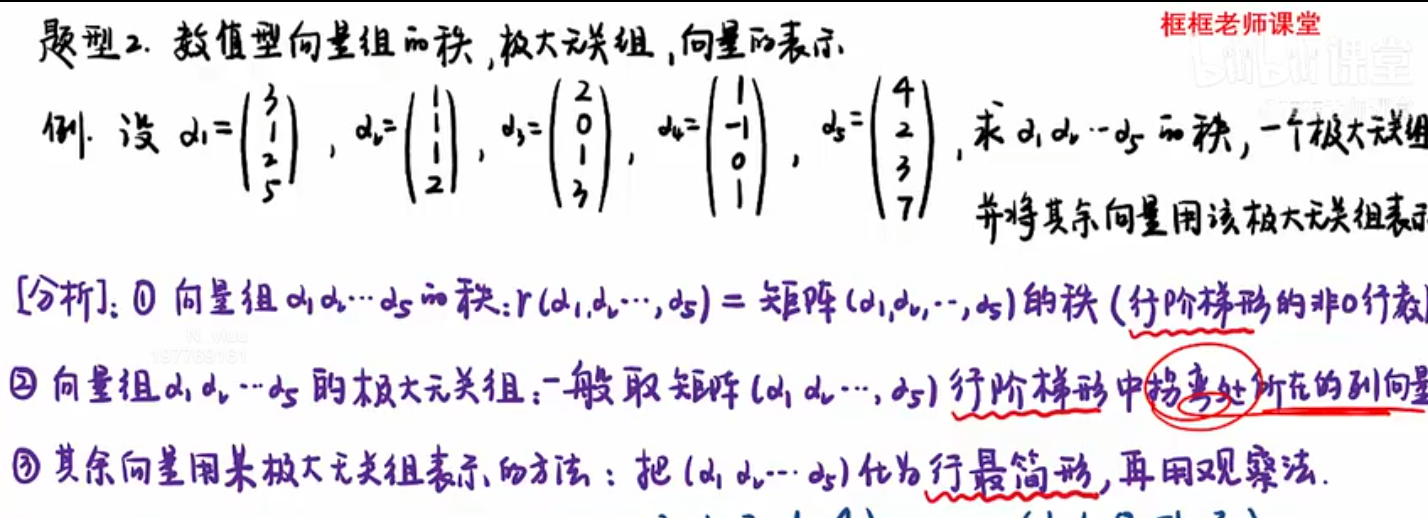 框框老师课堂
题型2. 数值型向量组的秩,极大无关组,向量的表示
bilibili课堂
例. 设 α1=(3 1 2 5), α2=(1 1 1 2), α3=(2 0 1 3), α4=(1 -1 0 1), α5=(4 2 3 7), 求α1 α2…α5的秩,一个极大无关组
并将其余向量用该极大无关组表示
[分析]: ① 向量组α1 α2…α5的秩: r(α1,α2…,α5) = 矩阵(α1,α2,…,α5)的秩 (行阶梯形的非0行数)
197769161
② 向量组α1 α2…α5的极大无关组:一般取矩阵(α1 α2…,α5)行阶梯形中拐弯处所在的列向量
③ 其余向量用某极大无关组表示的方法: 把(α1 α2…α5)化为行最简形,再用观察法.